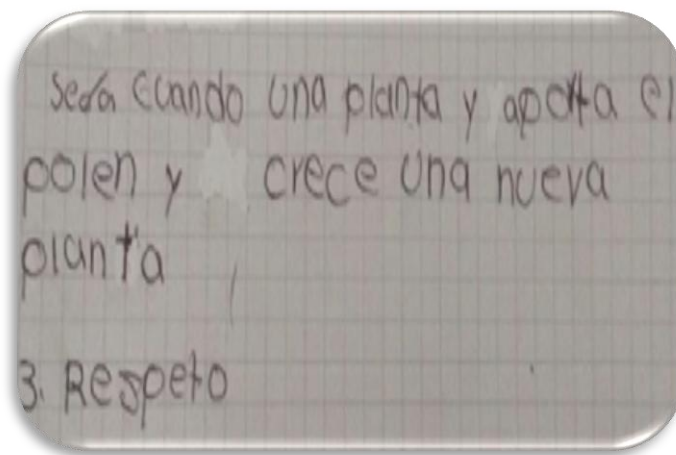 seda cuando una planta y aporta el
polen y crece una nueva
planta
3. Respeto